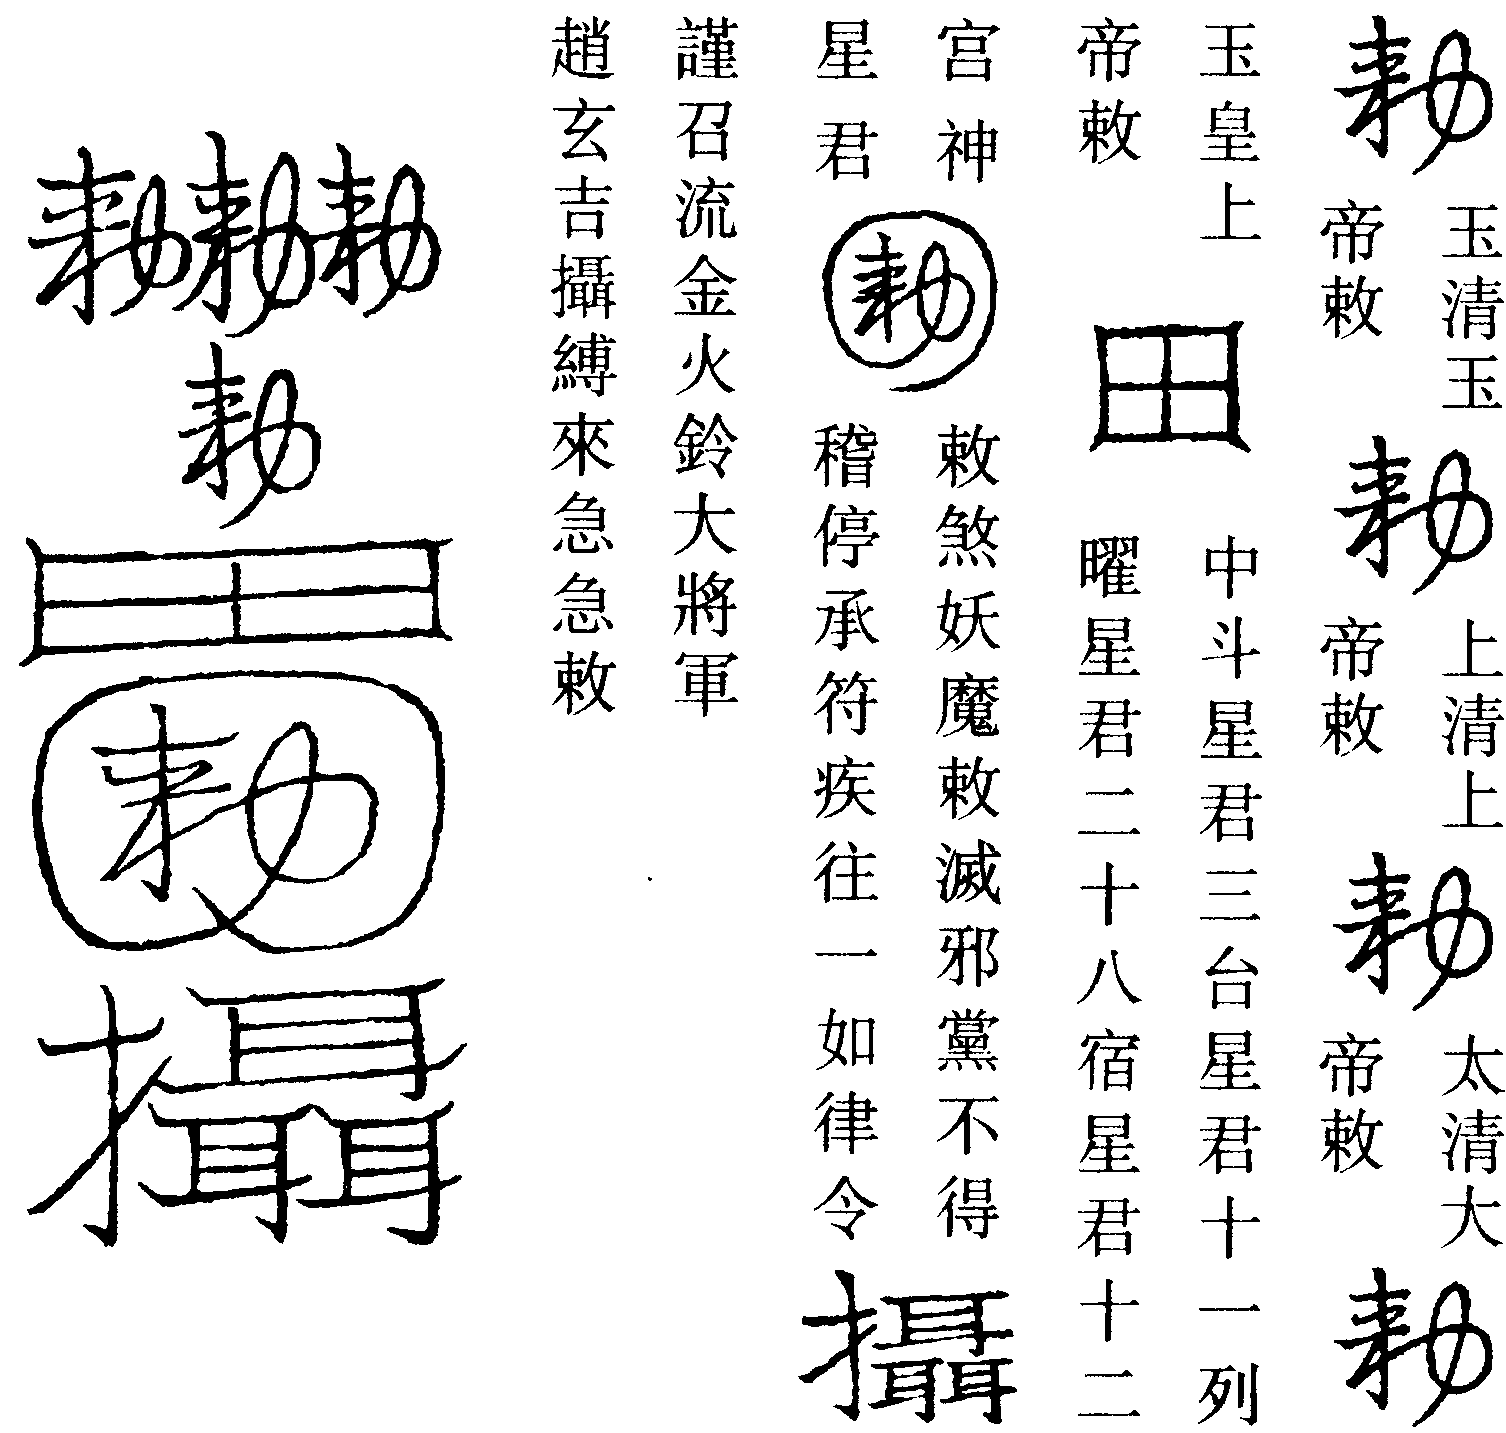 勅
玉清玉
帝敕
勅
上清上
帝敕
勅
太清大
帝敕
勅
玉皇上
帝敕
田
中斗星君三台星君十一列
曜星君二十八宿星君十二
宫神
星君
勅
敕煞妖魔敕滅邪黨不得
稽停承符疾往一如律令
攝
謹召流金火鈴大將軍
趙玄吉攝縛來急急敕
勅勅勅
勅
田
勅
攝